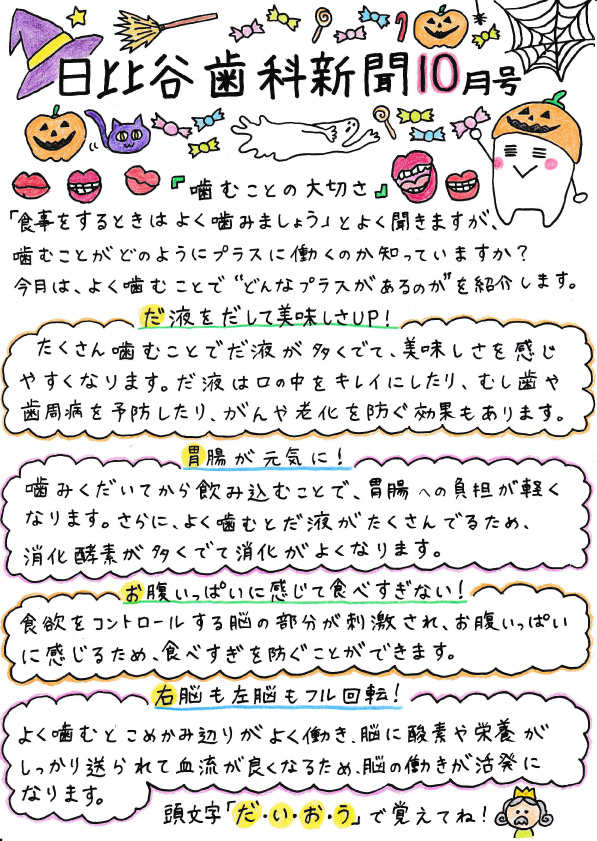 日比谷歯科新聞10月号
『噛むことの大切さ』
「食事をするときはよく噛みましょう」とよく聞きますが、
噛むことがどのようにプラスに働くのか知っていますか？
今月は、よく噛むことで“どんなプラスがあるのか”を紹介します。
だ液をだして美味しさUP！
たくさん噛むことでだ液が多くでて、美味しさを感じ
やすくなります。だ液は口の中をキレイにしたり、むし歯や
歯周病を予防したり、がんや老化を防ぐ効果もあります。
胃腸が元気に！
噛みくだいてから飲み込むことで、胃腸への負担が軽く
なります。さらに、よく噛むとだ液がたくさんでるため、
消化酵素が多くでて消化がよくなります。
お腹いっぱいに感じて食べすぎない！
食欲をコントロールする脳の部分が刺激され、お腹いっぱい
に感じるため、食べすぎを防ぐことができます。
右脳も左脳もフル回転！
よく噛むとこめかみ辺りがよく働き、脳に酸素や栄養が
しっかり送られて血流が良くなるため、脳の働きが活発に
なります。
頭文字「だ・い・お・う」で覚えてね！